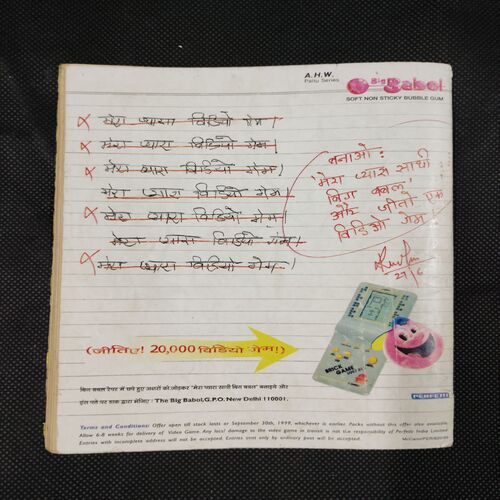 A.H.W.
Pattu Series
Big Babol
SOFT NON STICKY BUBBLE GUM
मेरा प्यारा विडियो गेम।
मेरा प्यारा विडियो गेम।
मेरा प्यारा विडियो गेम।
मेरा प्यारा विडियो गेम।
मेरा प्यारा विडियो गेम।
मेरा प्यारा विडियो गेम।
मेरा प्यारा विडियो गेम।
बनाओ:
मेरा प्यारा साथी
बिग बबल!
और जीतो एक
विडिओ गेम
27/6
(जीतिए! 20,000 विडियो गेम!)
BRICK
GAME
बिग बबल रैपर में छपे हुए अक्षरों को जोड़कर 'मेरा प्यारा साथी बिग बबल' बनाइये और
इस पते पर डाक द्वारा भेजिए : The Big Babol, G.P.O. New Delhi 110001.
PERFETTI
Terms and Conditions: Offer open till stock lasts or September 30th, 1999, whichever is earlier. Packs without this offer also available.
Allow 6-8 weeks for delivery of Video Game. Any loss/ damage to the video game in transit is not the responsibility of Perfetti India Limited
Entries with incomplete address will not be accepted. Entries sent only by ordinary post will be accepted.